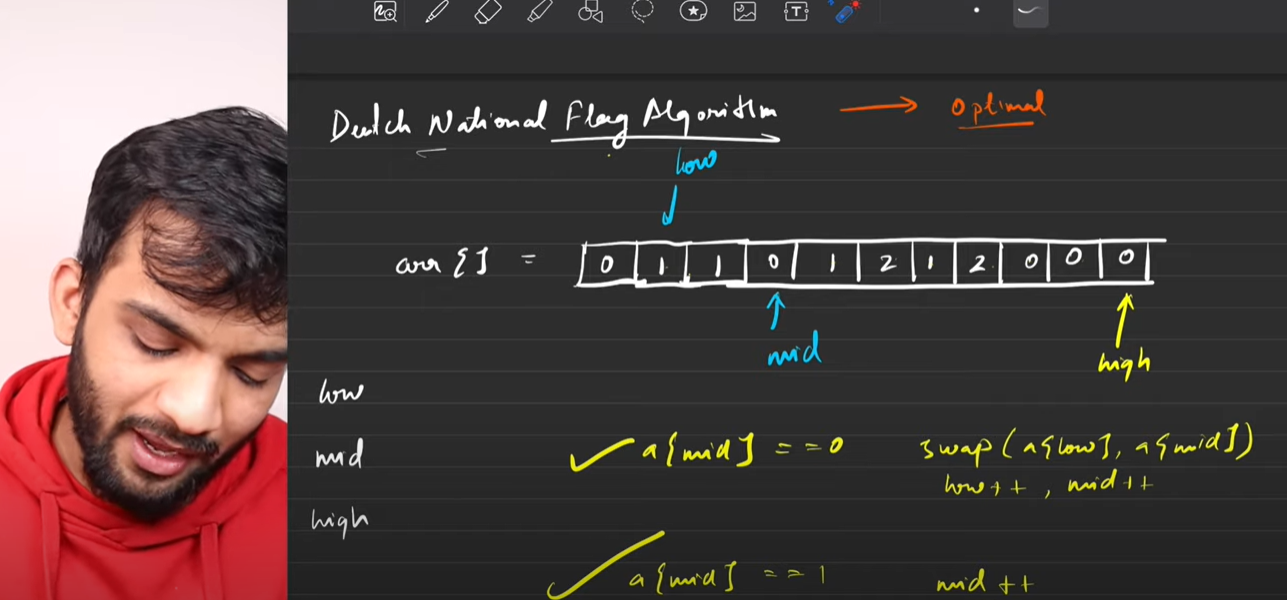 Dutch National Flag Algorithm → Optimal
low
arr [ ] = 0 1 1 0 1 2 1 2 0 0 0
mid
high
low
mid a[mid] == 0 swap(a[low], a[mid])
low++, mid++
high
a[mid] == 1 mid++